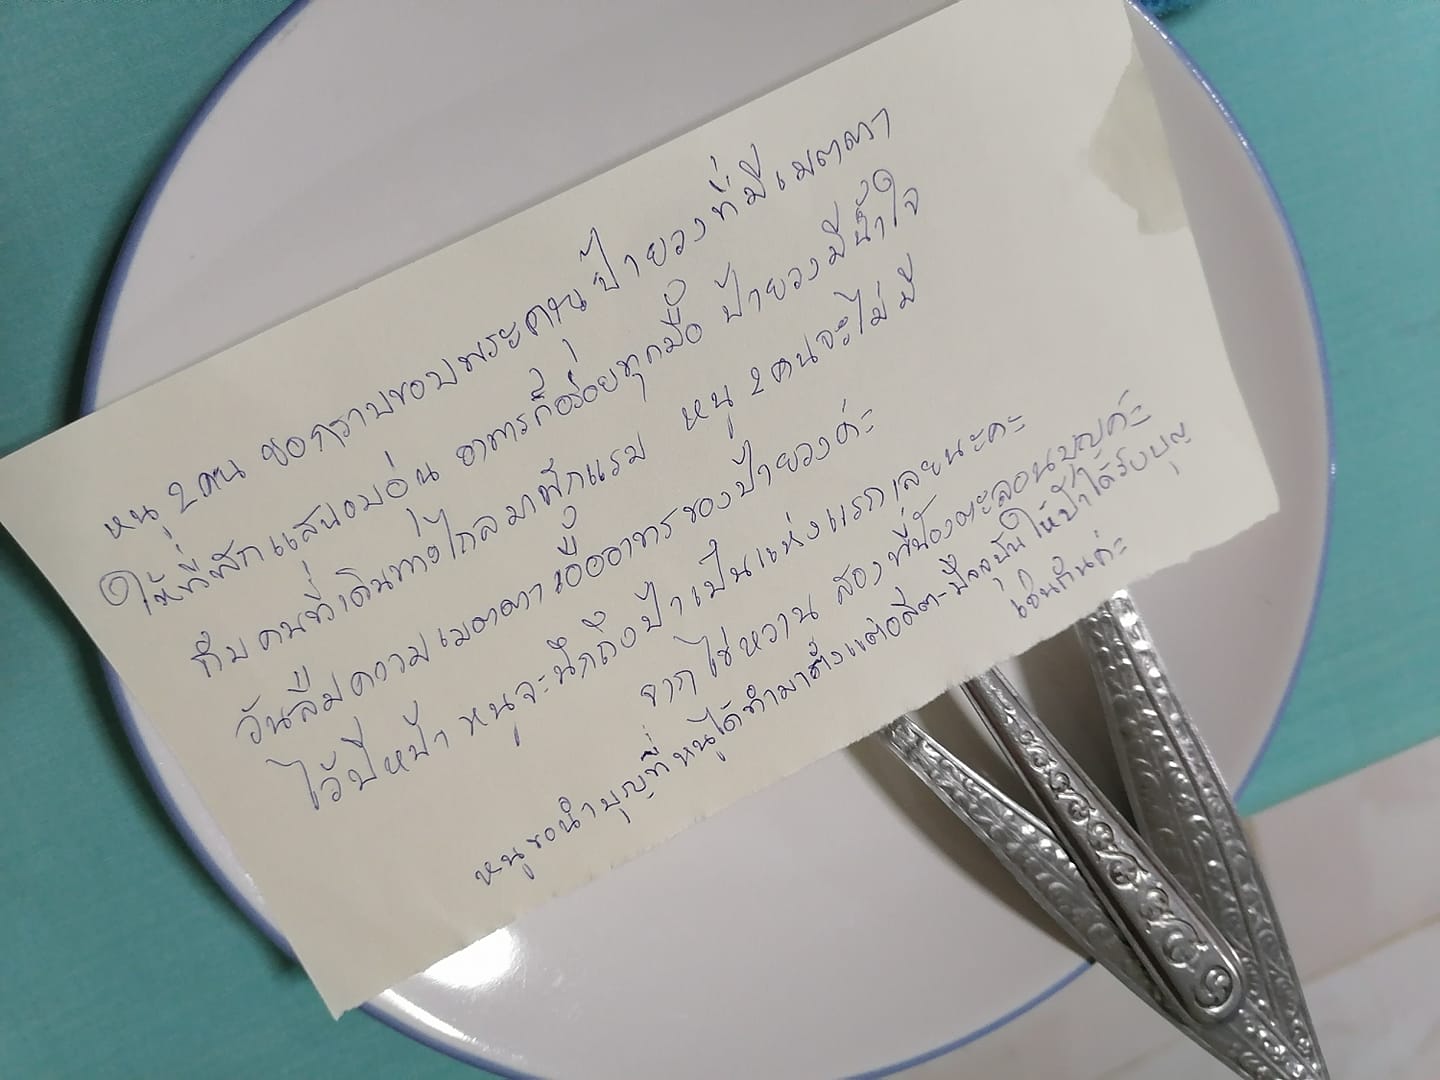 หนู 2 คน ขอกราบขอบพระคุณป้ายวงที่มีเมตตา
ให้ที่พักแสนอบอุ่น อาหารก็อร่อยทุกมื้อ ป้ายวงมีน้ำใจ
กับคนที่เดินทางไกลมาพักแรม หนู 2 คนจะไม่มี
วันลืมความเมตตาเอื้ออาทรของป้ายวงค่ะ
ไว้ปีหน้า หนูจะนึกถึงป้าเป็นแห่งแรกเลยนะคะ
จากไข่หวาน สองพี่น้องตะลอนบุญค่ะ
หนูขอนำบุญที่หนูได้ทำมาตั้งแต่อดีต-ปัจจุบันให้ป้าได้รับบุญ
เช่นกันค่ะ